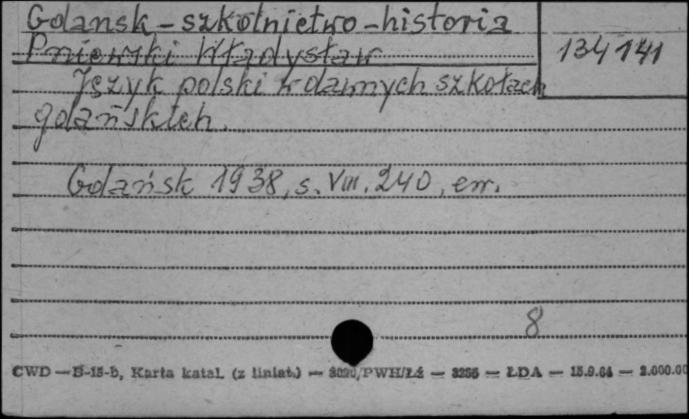 Gdańsk - szkolnictwo - historia
Pniewski Władysław
134141
Język polski w dawnych szkołach
gdańskich.
Gdańsk 1938, s. VIII, 240, err.
8
CWD — B-15-b, Karta katal. (z liniat.) — /PWH/Łź — 3256 — ŁDA — 15.9.64 — 2.000.00